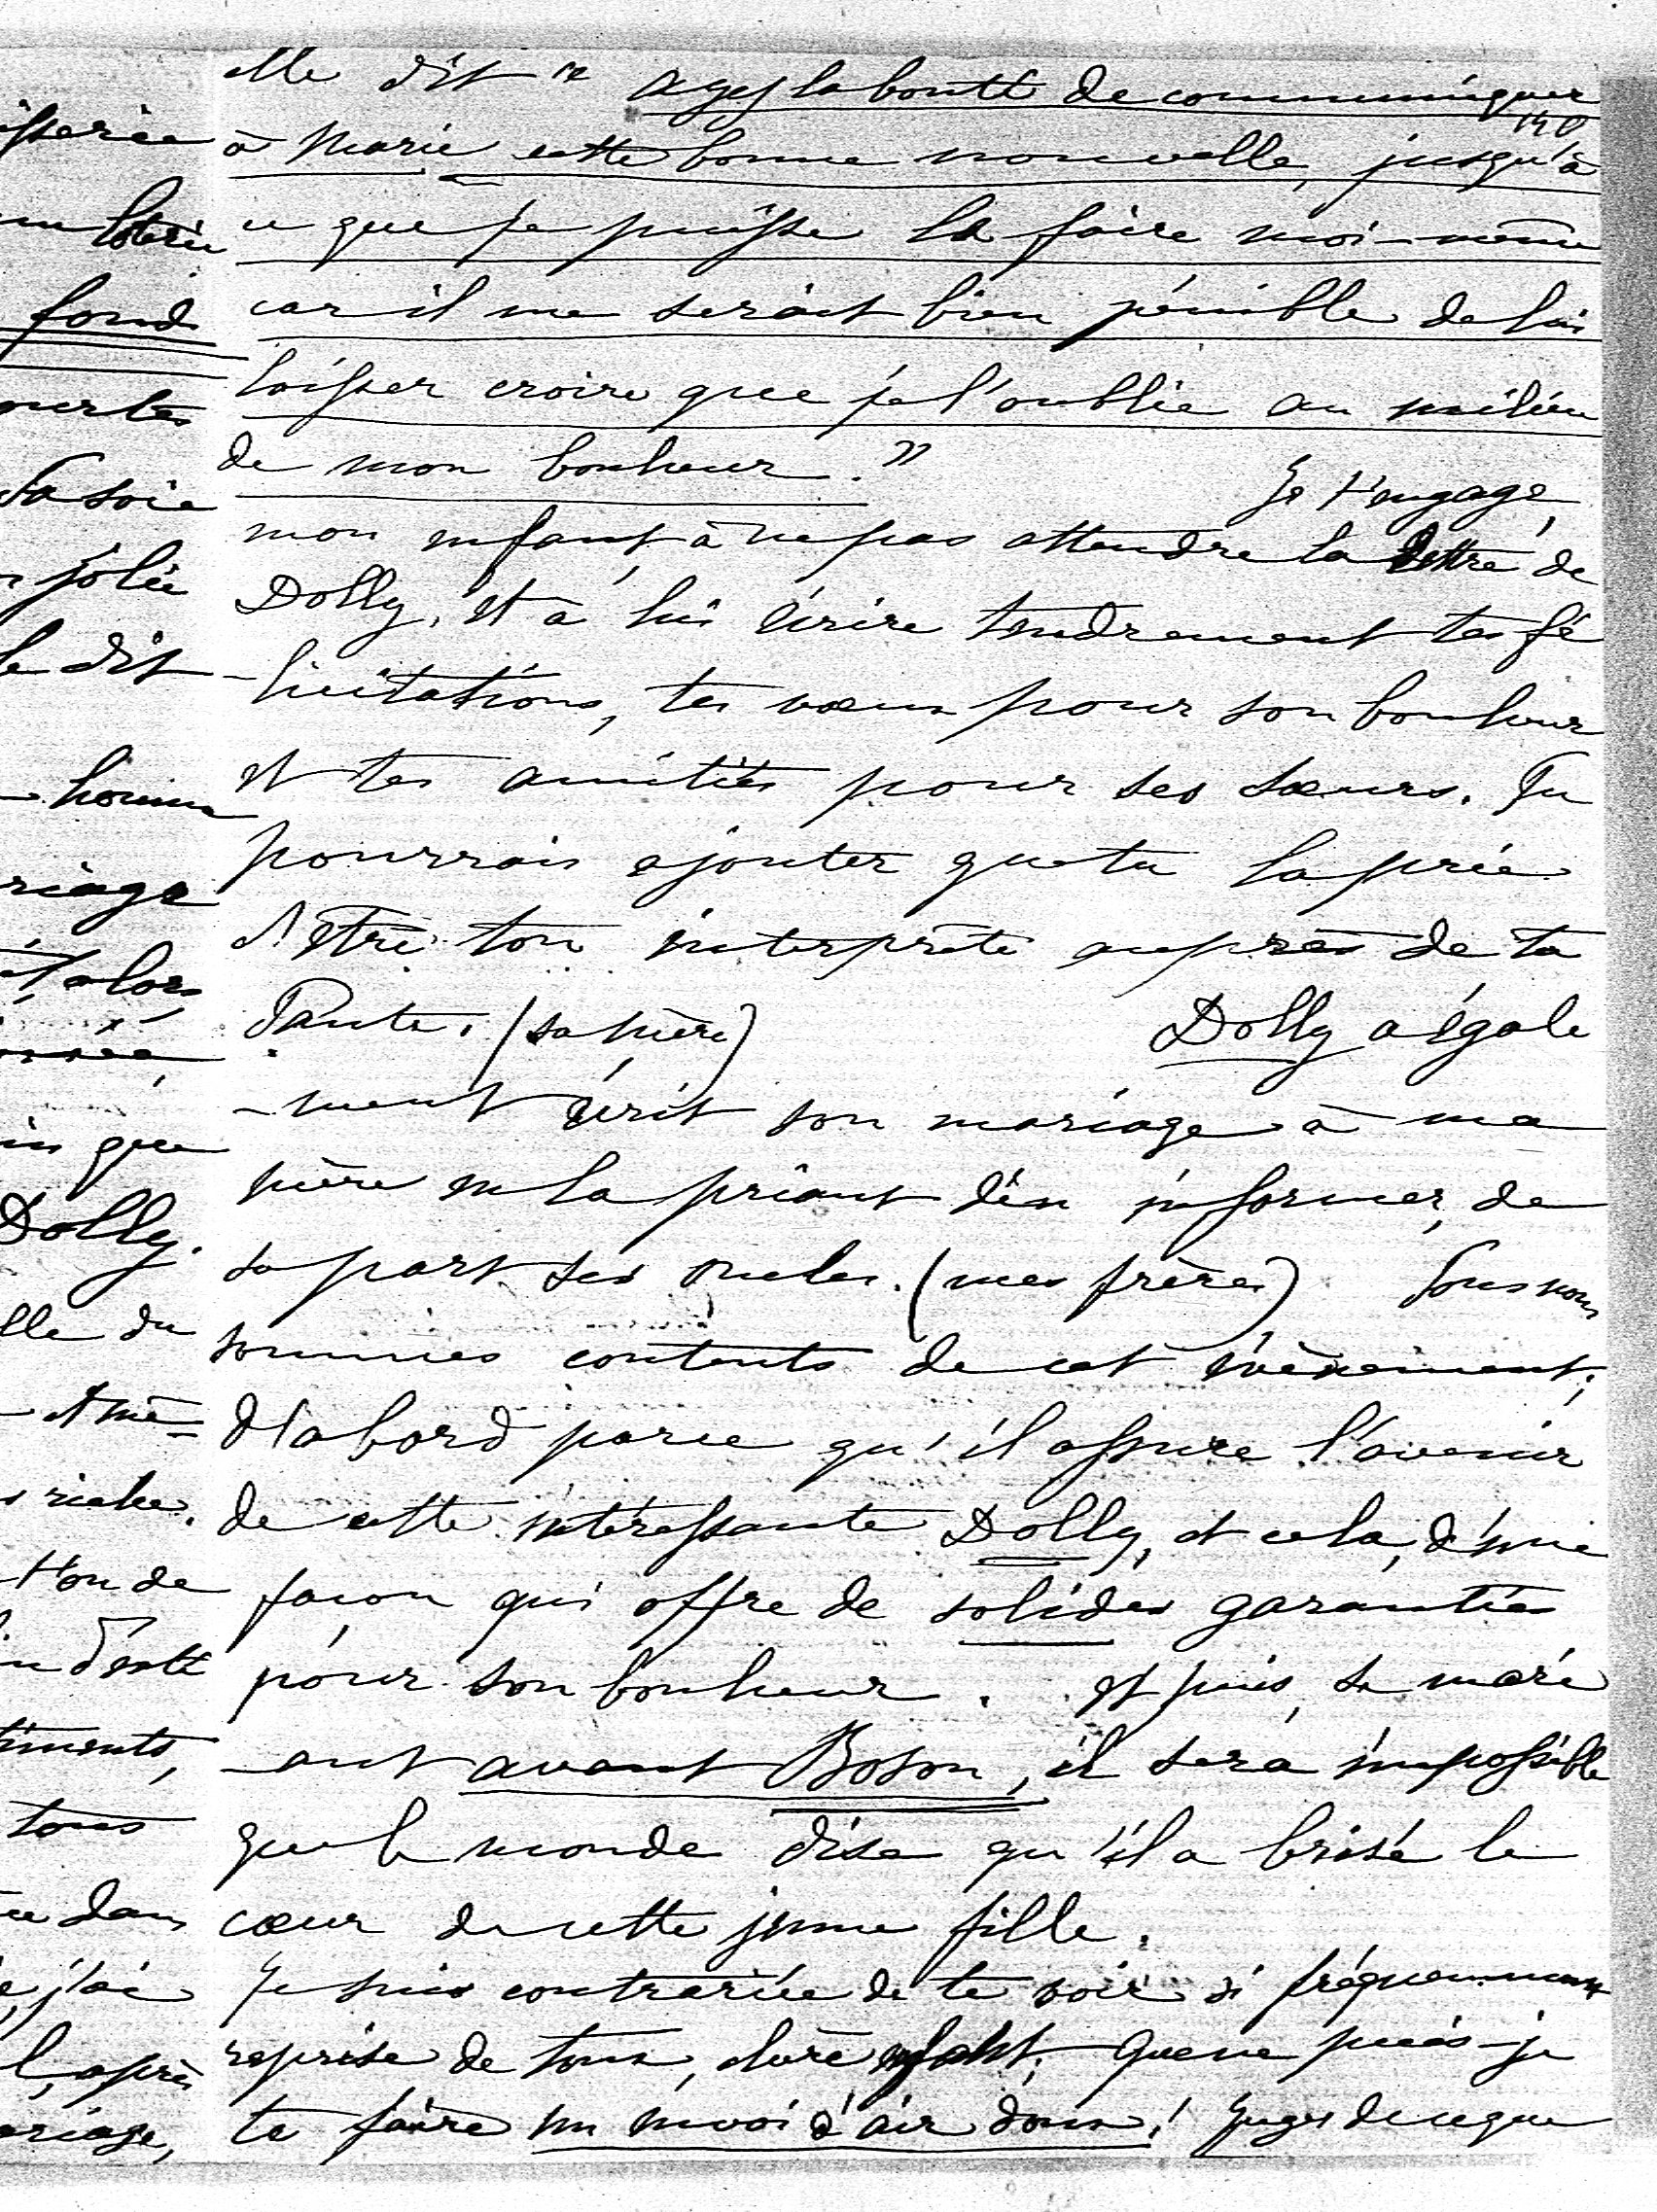 elle dit " ayez la bonté de communiquer
140
à Marie cette bonne nouvelle, jusqu'à
ce que je puisse le faire moi-même
car il me serait bien pénible de lui
laisser croire que je l'oublie au milieu
de mon bonheur. "
Je t'engage,
mon enfant, à ne pas attendre la lettre de
Dolly, et à lui écrire tendrement tes fé
-licitations, tes vœux pour son bonheur
et tes amitiés pour ses sœurs. Tu
pourrais ajouter que tu la prie
d'être ton interprète auprès de ta
Tante. (sa mère) Dolly a égale
-ment écrit son mariage à ma
mère en la priant d'en informer, de
sa part ses oncles. (mes frères) Tous nous
sommes contents de cet évènement;
d'abord parce qu'il assure l'avenir
de cette intéressante Dolly, et cela, d'une
façon qui offre de solides garanties
pour son bonheur. et puis, se mari
-ant avant Boson, il sera impossible
que le monde dise qu'il a brisé le
cœur de cette jeune fille.
Je suis contrariée de te voir si fréquemment
reprise de toux, chère enfant. Que ne puis-je
te faire un envoi d'air doux! Juges de ce que
isserie
loterie
fond
courtes
Sa soie
jolie
le dit
homme
riage
alors
que
Dolly.
elle du
et mè=
riche.
t'on de
timents,
tous
dans
j'ai
après
ariage,